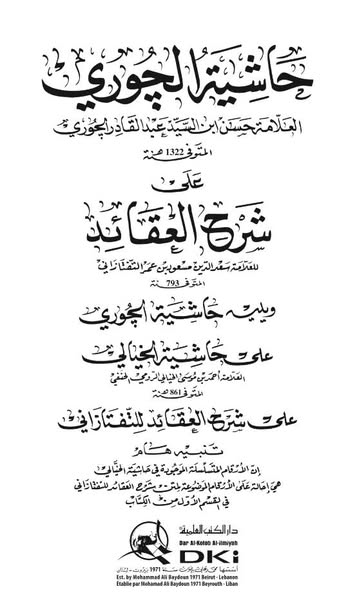 حاشية الچوري
العلامة حسن ابن السيد عبد القادر الچوري
المتوفى 1322 هـنة
على
شرح العقائد
للعلامة سعد الدين مسعود بن عمر التفتازاني
المتوفى 793 هـنة
ويليه حاشية الچوري
على حاشية الخيالي
العلامة أحمد بن موسى الخيالي الرومي الحنفي
المتوفى 861 هـنة
على شرح العقائد للتفتازاني
تنبيه هام
إن الأرقام المتسلسلة الموجودة في حاشية الخيالي
هي إحالة على الأرقام الموضوعة بمتن شرح العقائد للتفتازاني
في القسم الأول من الكتاب
دار الكتب العلمية
Dar Al-Kotob Al-ilmiyah
DKi
أسسها محمد علي بيضون سنة 1971 بيروت - لبنان
Est. by Mohammad Ali Baydoun 1971 Beirut - Lebanon
Établie par Mohamad Ali Baydoun 1971 Beyrouth - Liban